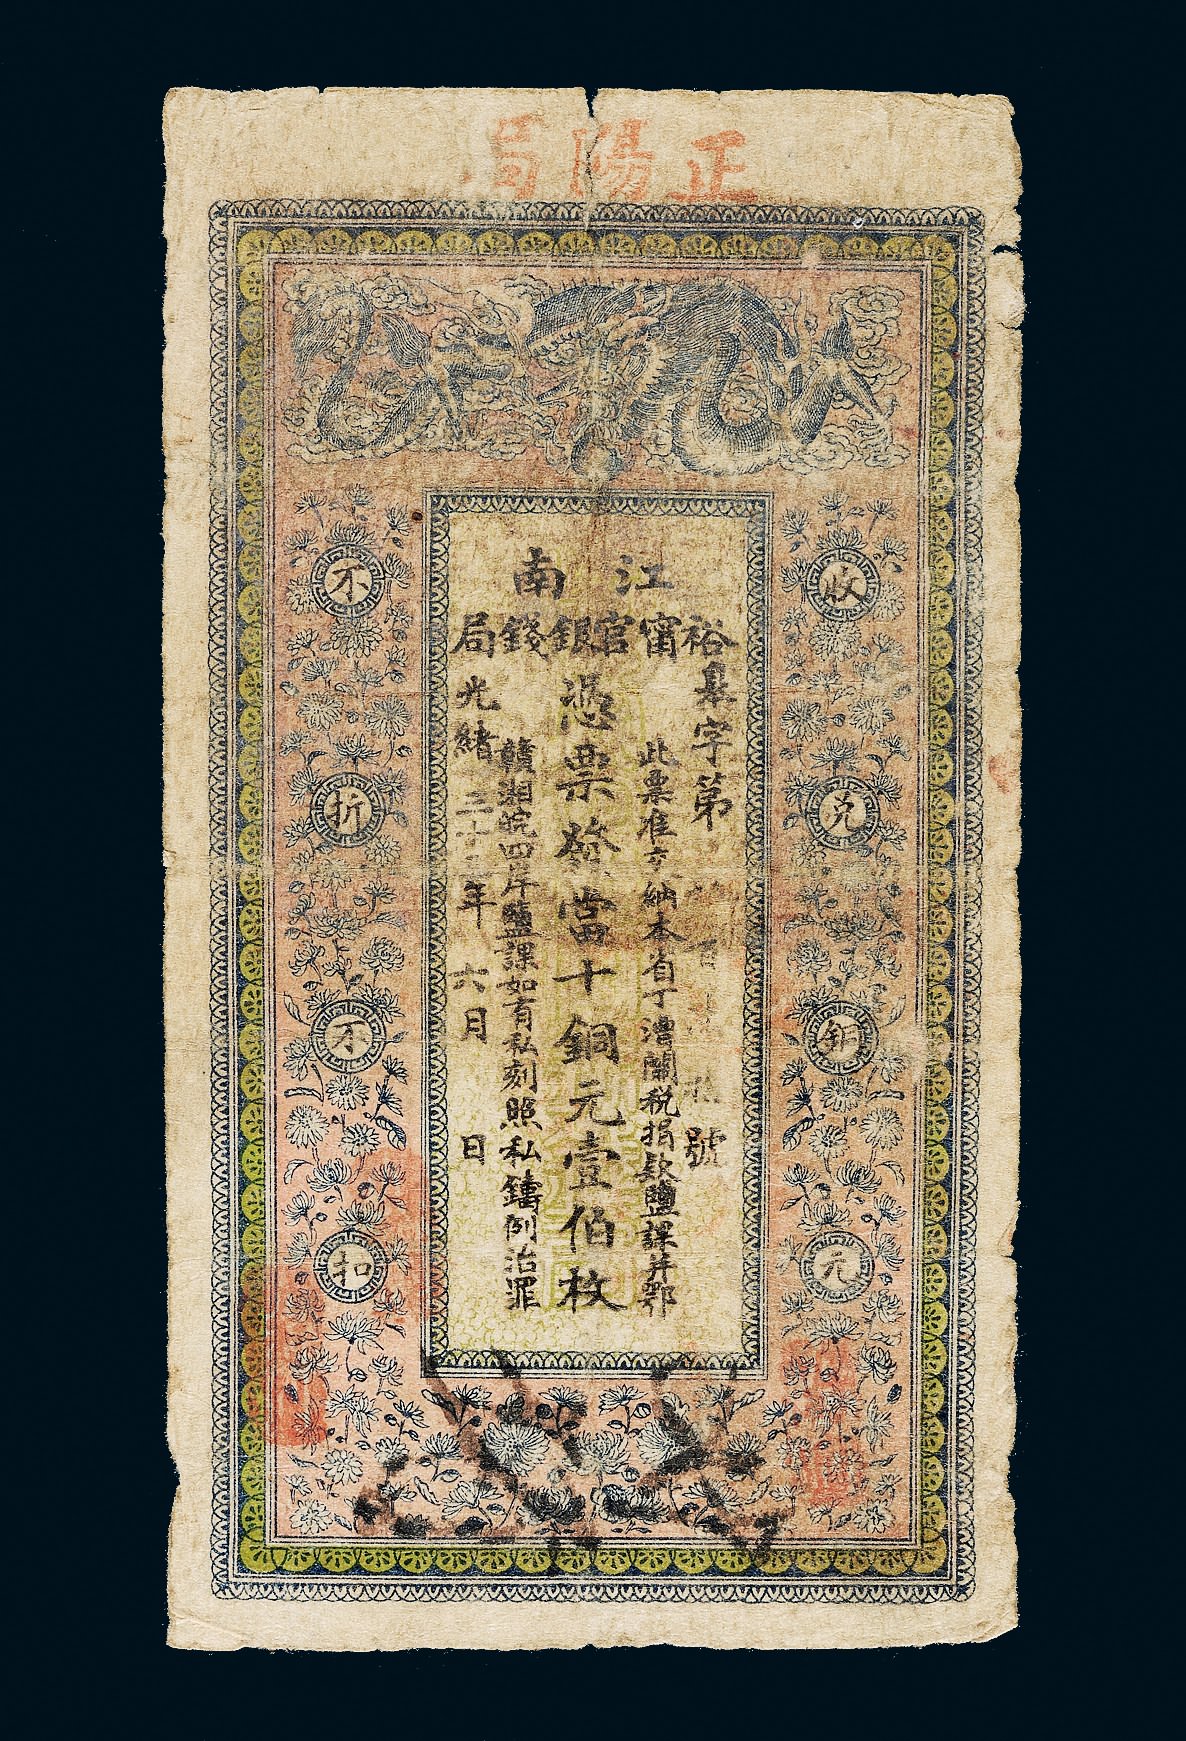 正陽局
江南
裕甯官銀錢局
臯字第 百 號
此票准交納本省丁漕關稅捐款鹽課并鄂
憑票發當十銅元壹伯枚
贛湘皖四岸鹽課如有私刻照私鑄例治罪
光緒三十 年六月 日
收兌銅元
不折不扣